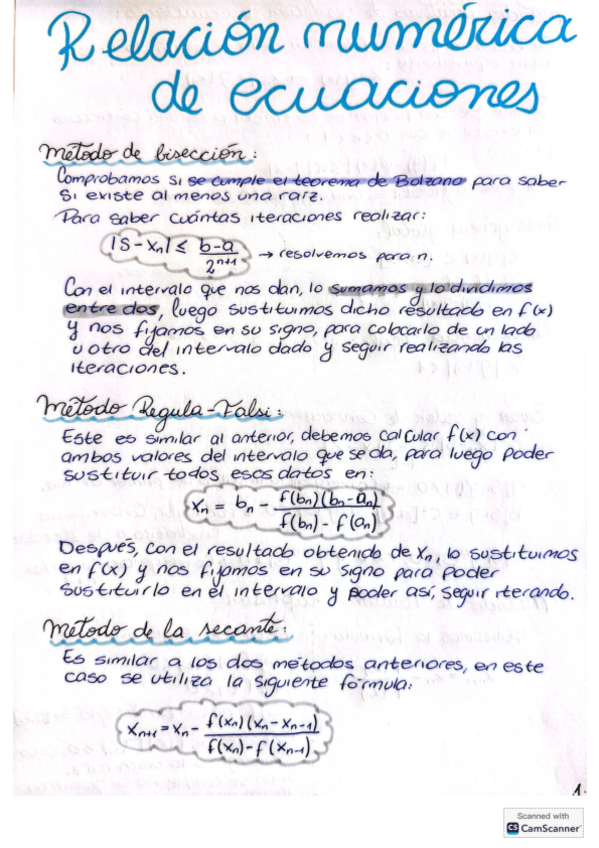 Relación numérica
de ecuaciones
Metodo de bisección:
Comprobamos si se cumple el teorema de Bolzano para saber
si existe al menos una raíz.
Para saber cuántas iteraciones realizar:
|S-xₙ| ≤ (b-a)/2ⁿ⁺¹ → resolvemos para n.
Con el intervalo que nos dan, lo sumamos y lo dividimos
entre dos, luego sustituimos dicho resultado en f(x)
y nos fijamos en su signo, para colocarlo de un lado
u otro del intervalo dado y seguir realizando las
iteraciones.
Método Regula-Falsi:
Este es similar al anterior, debemos calcular f(x) con
ambos valores del intervalo que se da, para luego poder
sustituir todos esos datos en:
xₙ = bₙ - f(bₙ)(bₙ-aₙ)/(f(bₙ) - f(aₙ))
Después, con el resultado obtenido de xₙ, lo sustituimos
en f(x) y nos fijamos en su signo para poder
sustituirlo en el intervalo y poder así, seguir iterando.
Metodo de la secante:
Es similar a los dos métodos anteriores, en este
caso se utiliza la siguiente fórmula:
xₙ₊₁ = xₙ - f(xₙ)(xₙ - xₙ₋₁)/(f(xₙ) - f(xₙ₋₁))
1.
Scanned with
CS CamScanner